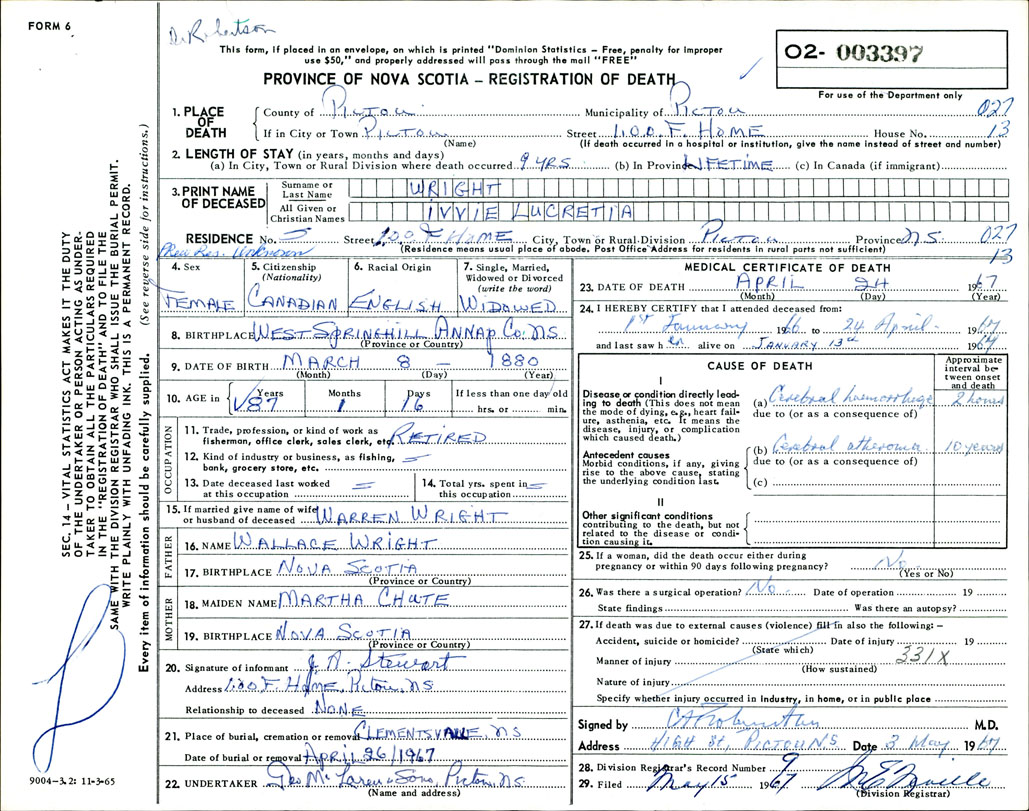 FORM 6
Dr Robertson
This form, if placed in an envelope, on which is printed "Dominion Statistics – Free, penalty for improper
use $50," and properly addressed will pass through the mail "FREE"
PROVINCE OF NOVA SCOTIA – REGISTRATION OF DEATH
02- 003397
For use of the Department only
1. PLACE OF DEATH
County of Pictou Municipality of Pictou 027
If in City or Town Pictou Street I.O.O.F. Home House No. 13
(Name) (If death occurred in a hospital or institution, give the name instead of street and number)
2. LENGTH OF STAY (in years, months and days)
(a) In City, Town or Rural Division where death occurred 9 yrs (b) In Province Lifetime (c) In Canada (if immigrant)
3. PRINT NAME OF DECEASED
Surname or Last Name WRIGHT
All Given or Christian Names IVVIE LUCRETIA
RESIDENCE No. Street I.O.O.F Home City, Town or Rural Division Pictou Province N.S. 027
(Residence means usual place of abode. Post Office Address for residents in rural parts not sufficient) 13
Prev. Res. Unknown
4. Sex Female
5. Citizenship (Nationality) Canadian
6. Racial Origin English
7. Single, Married, Widowed or Divorced (write the word) Widowed
8. BIRTHPLACE West Springhill Annap Co. N.S.
(Province or Country)
9. DATE OF BIRTH March 8 – 1880
(Month) (Day) (Year)
10. AGE in Years 87 Months 1 Days 16 If less than one day old hrs. or min.
OCCUPATION
11. Trade, profession, or kind of work as
fisherman, office clerk, sales clerk, etc. Retired
12. Kind of industry or business, as fishing,
bank, grocery store, etc.
13. Date deceased last worked
at this occupation
14. Total yrs. spent in
this occupation
15. If married give name of wife
or husband of deceased Warren Wright
FATHER
16. NAME Wallace Wright
17. BIRTHPLACE Nova Scotia
(Province or Country)
MOTHER
18. MAIDEN NAME Martha Chute
19. BIRTHPLACE Nova Scotia
(Province or Country)
20. Signature of informant J. A. Stewart
Address I.O.O.F. Home, Pictou, N.S
Relationship to deceased None
21. Place of burial, cremation or removal Clementsvale, N.S
Date of burial or removal April 26/1967
22. UNDERTAKER Geo McLaren & Sons, Pictou, N.S.
(Name and address)
MEDICAL CERTIFICATE OF DEATH
23. DATE OF DEATH April 24 1967
(Month) (Day) (Year)
24. I HEREBY CERTIFY that I attended deceased from:
1st January 1966 to 24 April 1967
and last saw her alive on January 13th 1967
CAUSE OF DEATH
Approximate interval between onset and death
I
Disease or condition directly leading to death (This does not mean the mode of dying, e.g., heart failure, asthenia, etc. It means the disease, injury, or complication which caused death.)
(a) Cerebral haemorrhage 2 hours
due to (or as a consequence of)
Antecedent causes
Morbid conditions, if any, giving rise to the above cause, stating the underlying condition last.
(b) Cerebral atheroma 10 years
due to (or as a consequence of)
(c)
II
Other significant conditions
contributing to the death, but not related to the disease or condition causing it.
25. If a woman, did the death occur either during
pregnancy or within 90 days following pregnancy? No
(Yes or No)
26. Was there a surgical operation? No Date of operation 19
State findings Was there an autopsy?
27. If death was due to external causes (violence) fill in also the following: –
Accident, suicide or homicide? Date of injury 19
(State which)
Manner of injury 331X
(How sustained)
Nature of injury
Specify whether injury occurred in Industry, in home, or in public place
Signed by M.D.
Address High St, Pictou N.S. Date 3 May 1967
28. Division Registrar's Record Number 9
29. Filed May 15 1967
(Division Registrar)
SEC. 14 – VITAL STATISTICS ACT MAKES IT THE DUTY
OF THE UNDERTAKER OR PERSON ACTING AS UNDER-
TAKER TO OBTAIN ALL THE PARTICULARS REQUIRED
IN THE "REGISTRATION OF DEATH" AND TO FILE THE
SAME WITH THE DIVISION REGISTRAR WHO SHALL ISSUE THE BURIAL PERMIT.
WRITE PLAINLY WITH UNFADING INK. THIS IS A PERMANENT RECORD.
Every item of information should be carefully supplied. (See reverse side for instructions.)
9004-3.2: 11-3-65